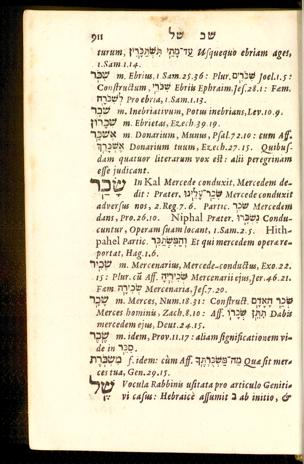 911 שכ של
turum, עַד־מָתַי תִּשְׁתַּכָּרִין Usquequo ebriam ages,
1. Sam. 1.14.
שִׁכֹּר m. Ebrius, 1 Sam. 25.36: Plur. שִׁכֹּרִים Joel. 1.5:
Constructum, שִׁכֹּרֵי Ebrii Ephraim. Jes. 28.1: Fam.
לְשִׁכֹּרָה Pro ebria, 1. Sam. 1.13.
שֵׁכָר m. Inebriativum, Potus inebrians, Lev. 10.9.
שִׁכָּרוֹן m. Ebrietas, Ezech. 39.19.
אֶשְׁכָּר m. Donarium, Munus, Psal. 72.10: cum Aff.
אֶשְׁכָּרֵךְ Donarium tuum, Ezech. 27.15. Quibus-
dam quatuor literarum vox est: alii peregrinam
esse judicant.
שָׂכַר In Kal Mercede conduxit, Mercedem de-
dit: Prater. שָׂכַר עָלֵינוּ Mercede conduxit
adversus nos, 2. Reg. 7.6. Partic. שֹׂכֵר Mercedem
dans, Pro. 26.10. Niphal Prater. נִשְׂכָּרוּ Condu-
cuntur, Operam suam locant, 1. Sam. 2.5. Hith-
pahel Partic. וְהַמִּשְׂתַּכֵּר Et qui mercedem opera re-
portat, Hag. 1.6.
שָׂכִיר m. Mercenarius, Mercede conductus, Exo. 22.
15: Plur. cū Aff. שְׂכִירֶיהָ Mercenarii ejus, Jer. 46.21.
שְׂכִירָה Fam. Mercenaria, Jes. 7.20.
שָׂכָר m. Merces, Num. 18.31: Construct. שְׂכַר הָאָדָם
Merces hominis, Zach. 8.10: Aff. תִּתֵּן שְׂכָרוֹ Dabis
mercedem ejus, Deut. 24.15.
שֶׂכֶר m. idem, Prov. 11.17: aliam significationem vi-
de in סָכַר.
מַשְׂכֹּרֶת f. idem: cùm Aff. מַה־מַּשְׂכֻּרְתֶּךָ Qua sit mer-
ces tua, Gen. 29.15.
שֶׁל Vocula Rabbinis usitata pro articulo Geniti-
vi casus: Hebraicè assumit ב ab initio, &